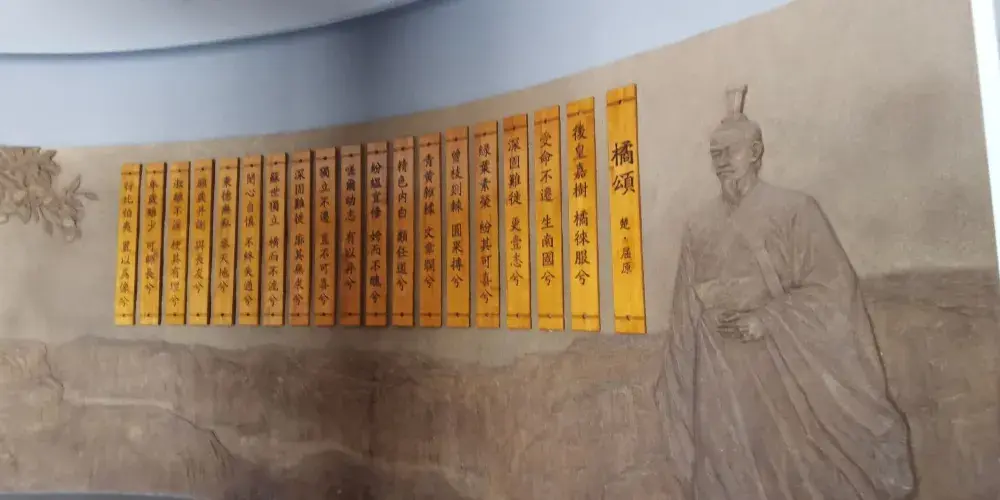 橘頌 楚·屈原
後皇嘉樹 橘徠服兮
受命不遷 生南國兮
深固難徙 更壹志兮
綠葉素榮 紛其可喜兮
曾枝剡棘 圓果摶兮
青黃雜糅 文章爛兮
精色內白 類任道兮
紛緼宜脩 姱而不醜兮
嗟爾幼志 有以異兮
獨立不遷 豈不可喜兮
深固難徙 廓其無求兮
蘇世獨立 橫而不流兮
閉心自慎 不終失過兮
秉德無私 參天地兮
願歲并謝 與長友兮
淑離不淫 梗其有理兮
年歲雖少 可師長兮
行比伯夷 置以為像兮